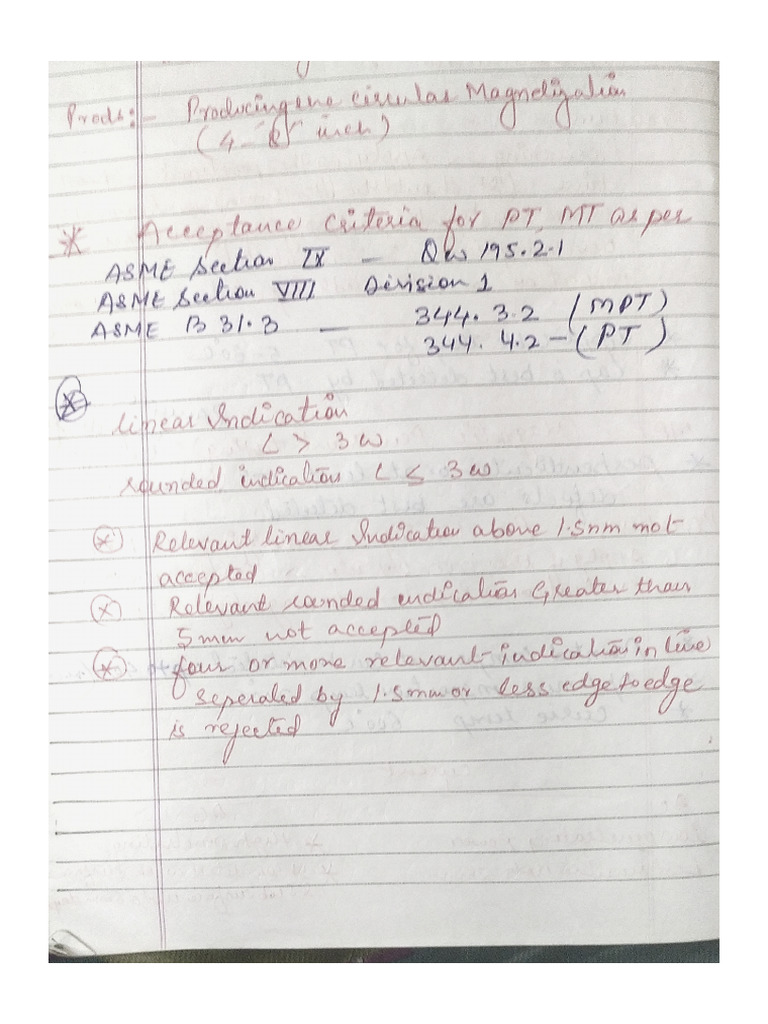 Prods:- Producing the circular Magnetization
(4-8 inch)
* Acceptance Criteria for PT, MT as per
ASME Section IX - QW 195.2.1
ASME Section VIII Division 1
ASME B 31.3 - 344.3.2 (MPT)
344.4.2-(PT)
* linear Indication
L > 3w
rounded indication L ≤ 3w
* Relevant linear Indication above 1.5mm not
accepted
* Relevant rounded indication Greater than
5mm not accepted
* four or more relevant indication in line
seperated by 1.5mm or less edge to edge
is rejected